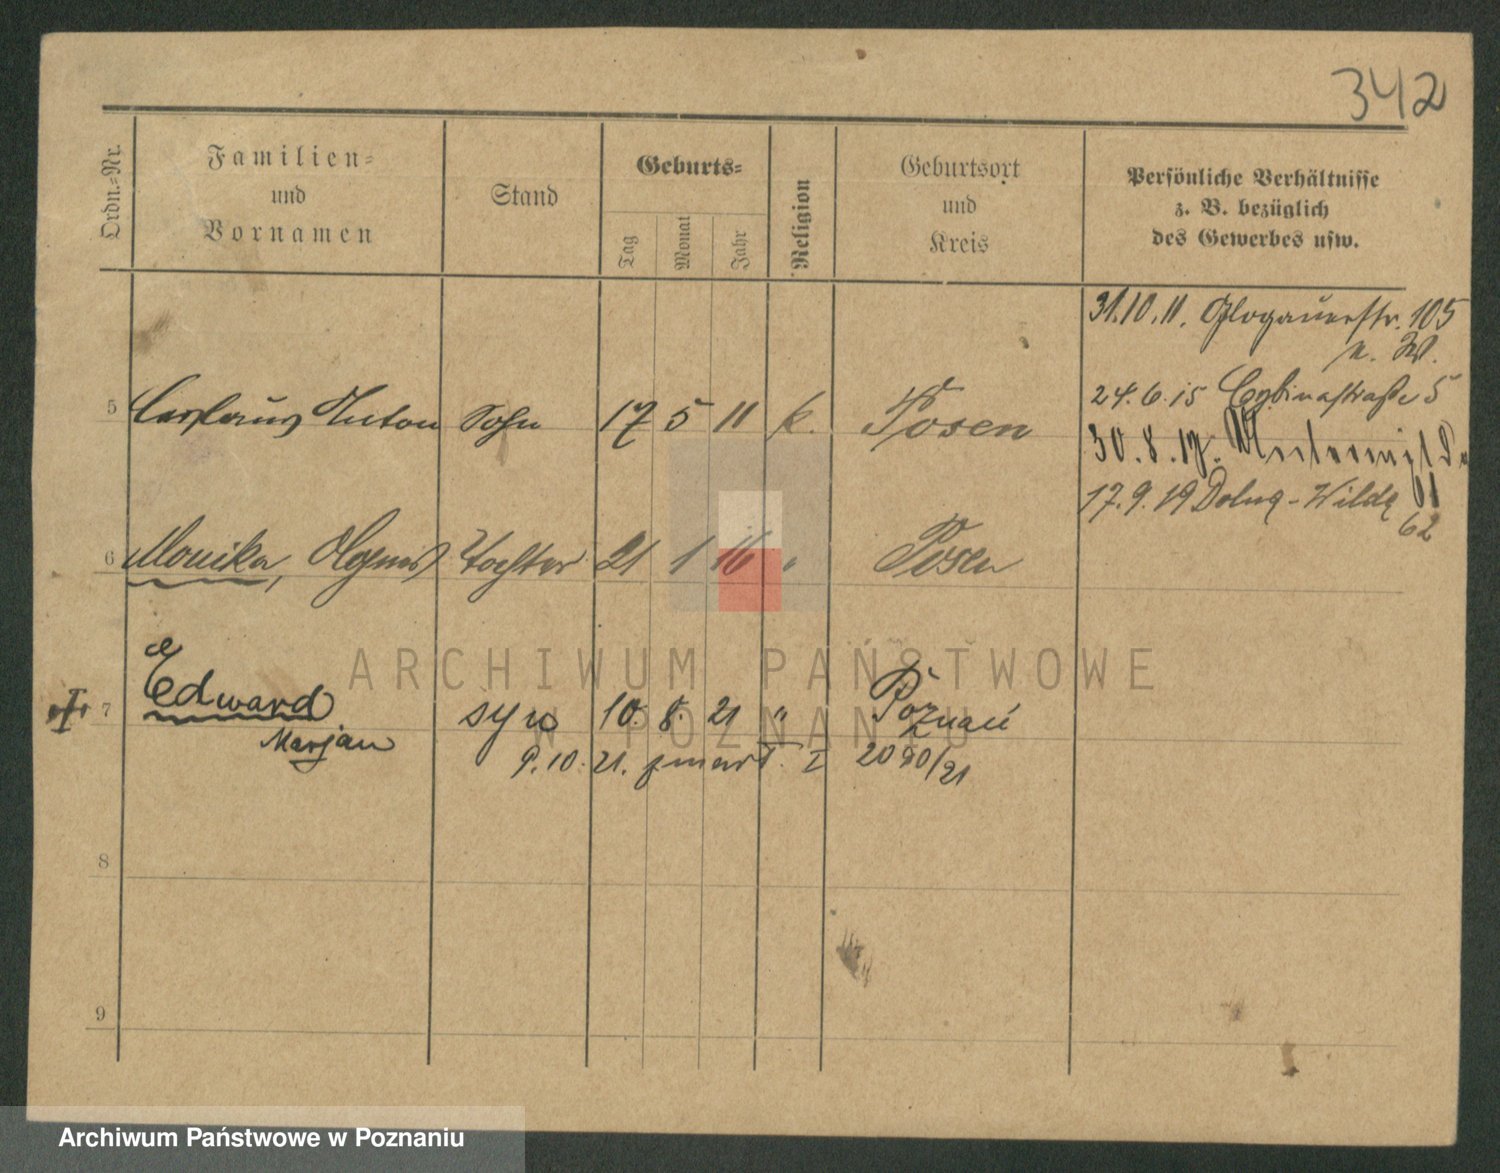 342
Ordn.-Nr.
Familien-
und
Vornamen
Stand
Geburts-
Tag
Monat
Jahr
Religion
Geburtsort
und
Kreis
Persönliche Verhältnisse
z. B. bezüglich
des Gewerbes usw.
31.10.11. Glogauerstr. 105
24.6.15 Cybinastraße 5
30.8.17.
17.9.19 Dolna-Wilda 61
62
5 Anton Sohn 17 5 11 k. Posen
6 Monika, Agnes Tochter 21 1 16 " Posen
7 Edward syn 10. 8. 21 " Poznań
Marjan
9.10.21. zmarł. I 2090/21
8
9
ARCHIWUM PAŃSTWOWE
W POZNANIU
Archiwum Państwowe w Poznaniu